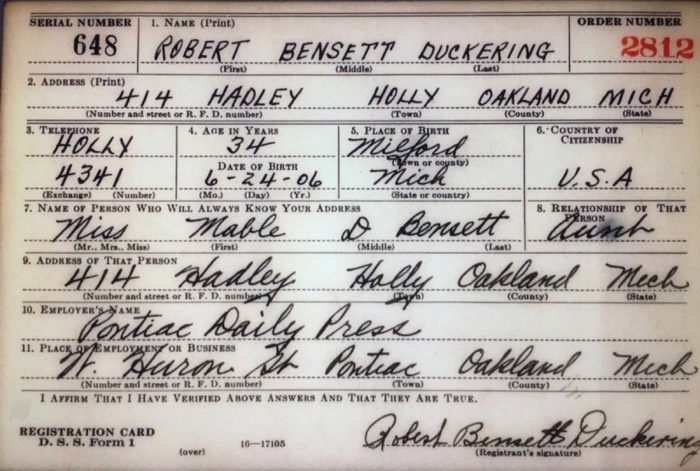 SERIAL NUMBER 1. NAME (Print) ORDER NUMBER
648 ROBERT BENSETT DUCKERING 2812
(First) (Middle) (Last)
2. ADDRESS (Print)
414 HADLEY HOLLY OAKLAND MICH
(Number and street or R. F. D. number) (Town) (County) (State)
3. TELEPHONE 4. AGE IN YEARS 5. PLACE OF BIRTH 6. COUNTRY OF CITIZENSHIP
HOLLY 34 Milford
DATE OF BIRTH (Town or county)
4341 6-24-06 Mich U.S.A
(Exchange) (Number) (Mo.) (Day) (Yr.) (State or country)
7. NAME OF PERSON WHO WILL ALWAYS KNOW YOUR ADDRESS 8. RELATIONSHIP OF THAT PERSON
Miss Mable D Bensett Aunt
(Mr., Mrs., Miss) (First) (Middle) (Last)
9. ADDRESS OF THAT PERSON
414 Hadley Holly Oakland Mech
(Number and street or R. F. D. number) (Town) (County) (State)
10. EMPLOYER'S NAME
Pontiac Daily Press
11. PLACE OF EMPLOYMENT OR BUSINESS
W. Huron St Pontiac Oakland Mech
(Number and street or R. F. D. number) (Town) (County) (State)
I AFFIRM THAT I HAVE VERIFIED ABOVE ANSWERS AND THAT THEY ARE TRUE.
REGISTRATION CARD
D. S. S. Form 1 (over) 16—17105 Robert Bensett Duckering
(Registrant's signature)